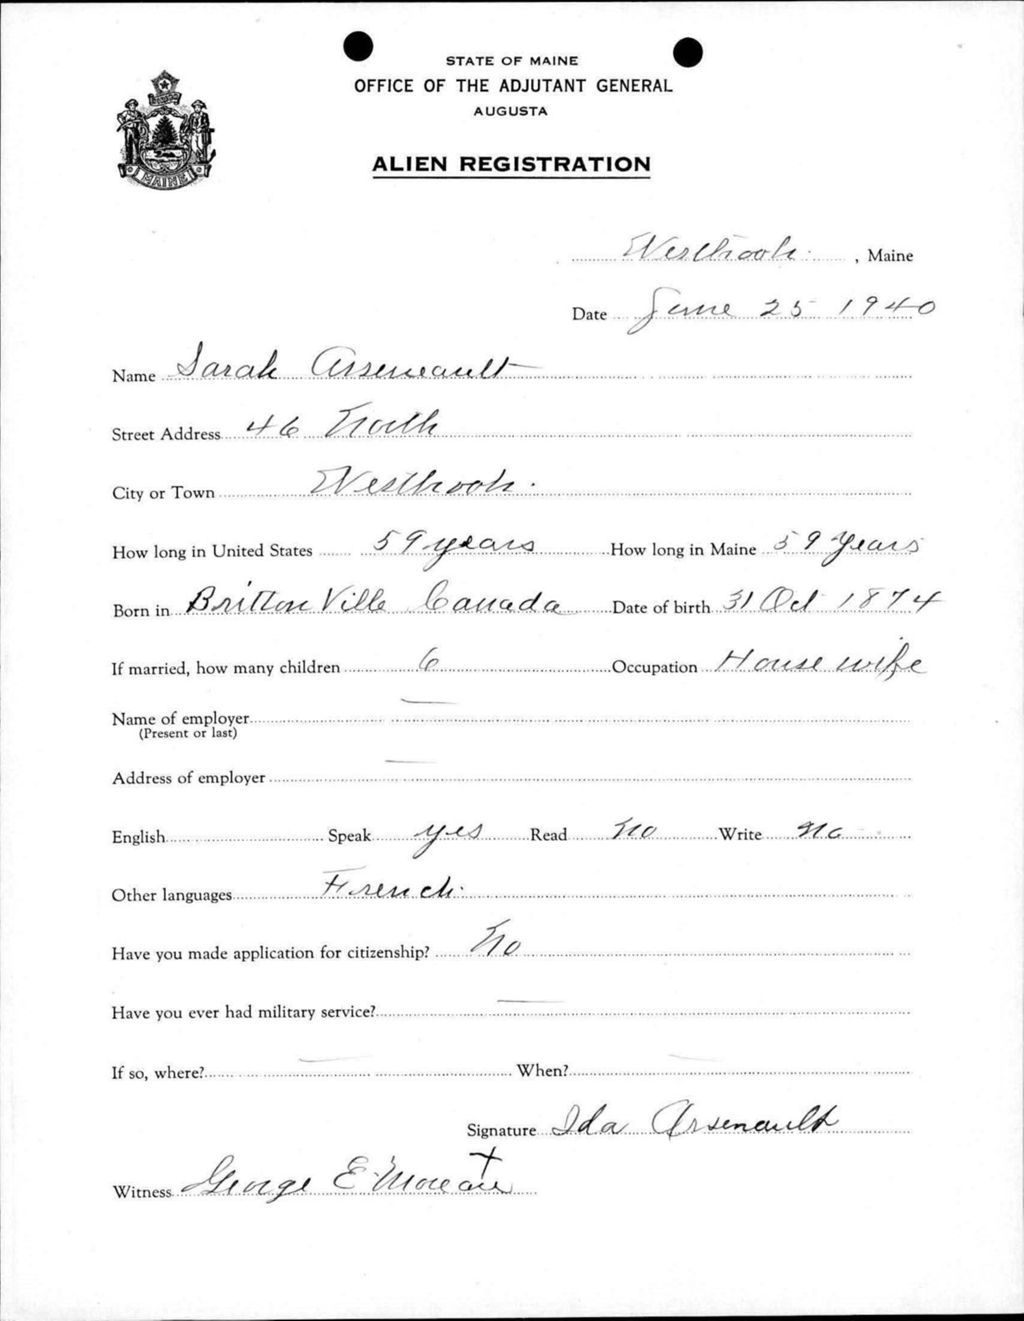 STATE OF MAINE
OFFICE OF THE ADJUTANT GENERAL
AUGUSTA
ALIEN REGISTRATION
MAINE
Westbrook, Maine
Date June 25 1940
Name Sarah Arseneault
Street Address 46 North
City or Town Westbrook.
How long in United States 59 years How long in Maine 59 Years
Born in Britton Ville Canada Date of birth 31 Oct 1874
If married, how many children 6 Occupation House wife
Name of employer —
(Present or last)
Address of employer —
English Speak yes Read No Write No
Other languages French.
Have you made application for citizenship? No
Have you ever had military service? —
If so, where? — When? —
Signature Ida Arsenault
Witness George E. Moreau